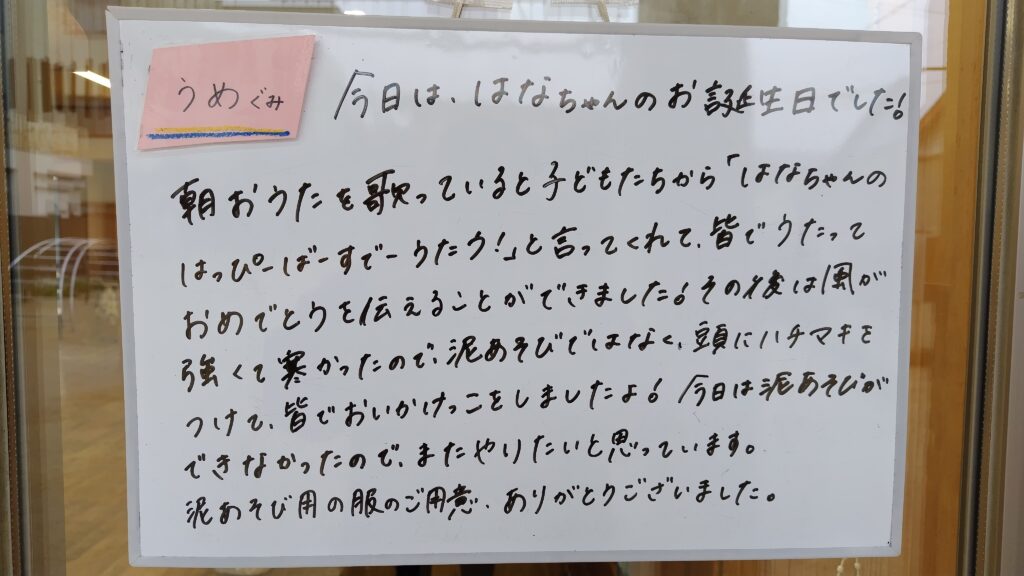 うめぐみ
今日は、はなちゃんのお誕生日でした!
朝おうたを歌っていると子どもたちから「はなちゃんの
はっぴーばーすでーうたう!」と言ってくれて、皆でうたって
おめでとうを伝えることができました!その後は風が
強くて寒かったので、泥あそびではなく、頭にハチマキを
つけて、皆でおいかけっこをしましたよ!今日は泥あそびが
できなかったので、またやりたいと思っています。
泥あそび用の服のご用意、ありがとうございました。